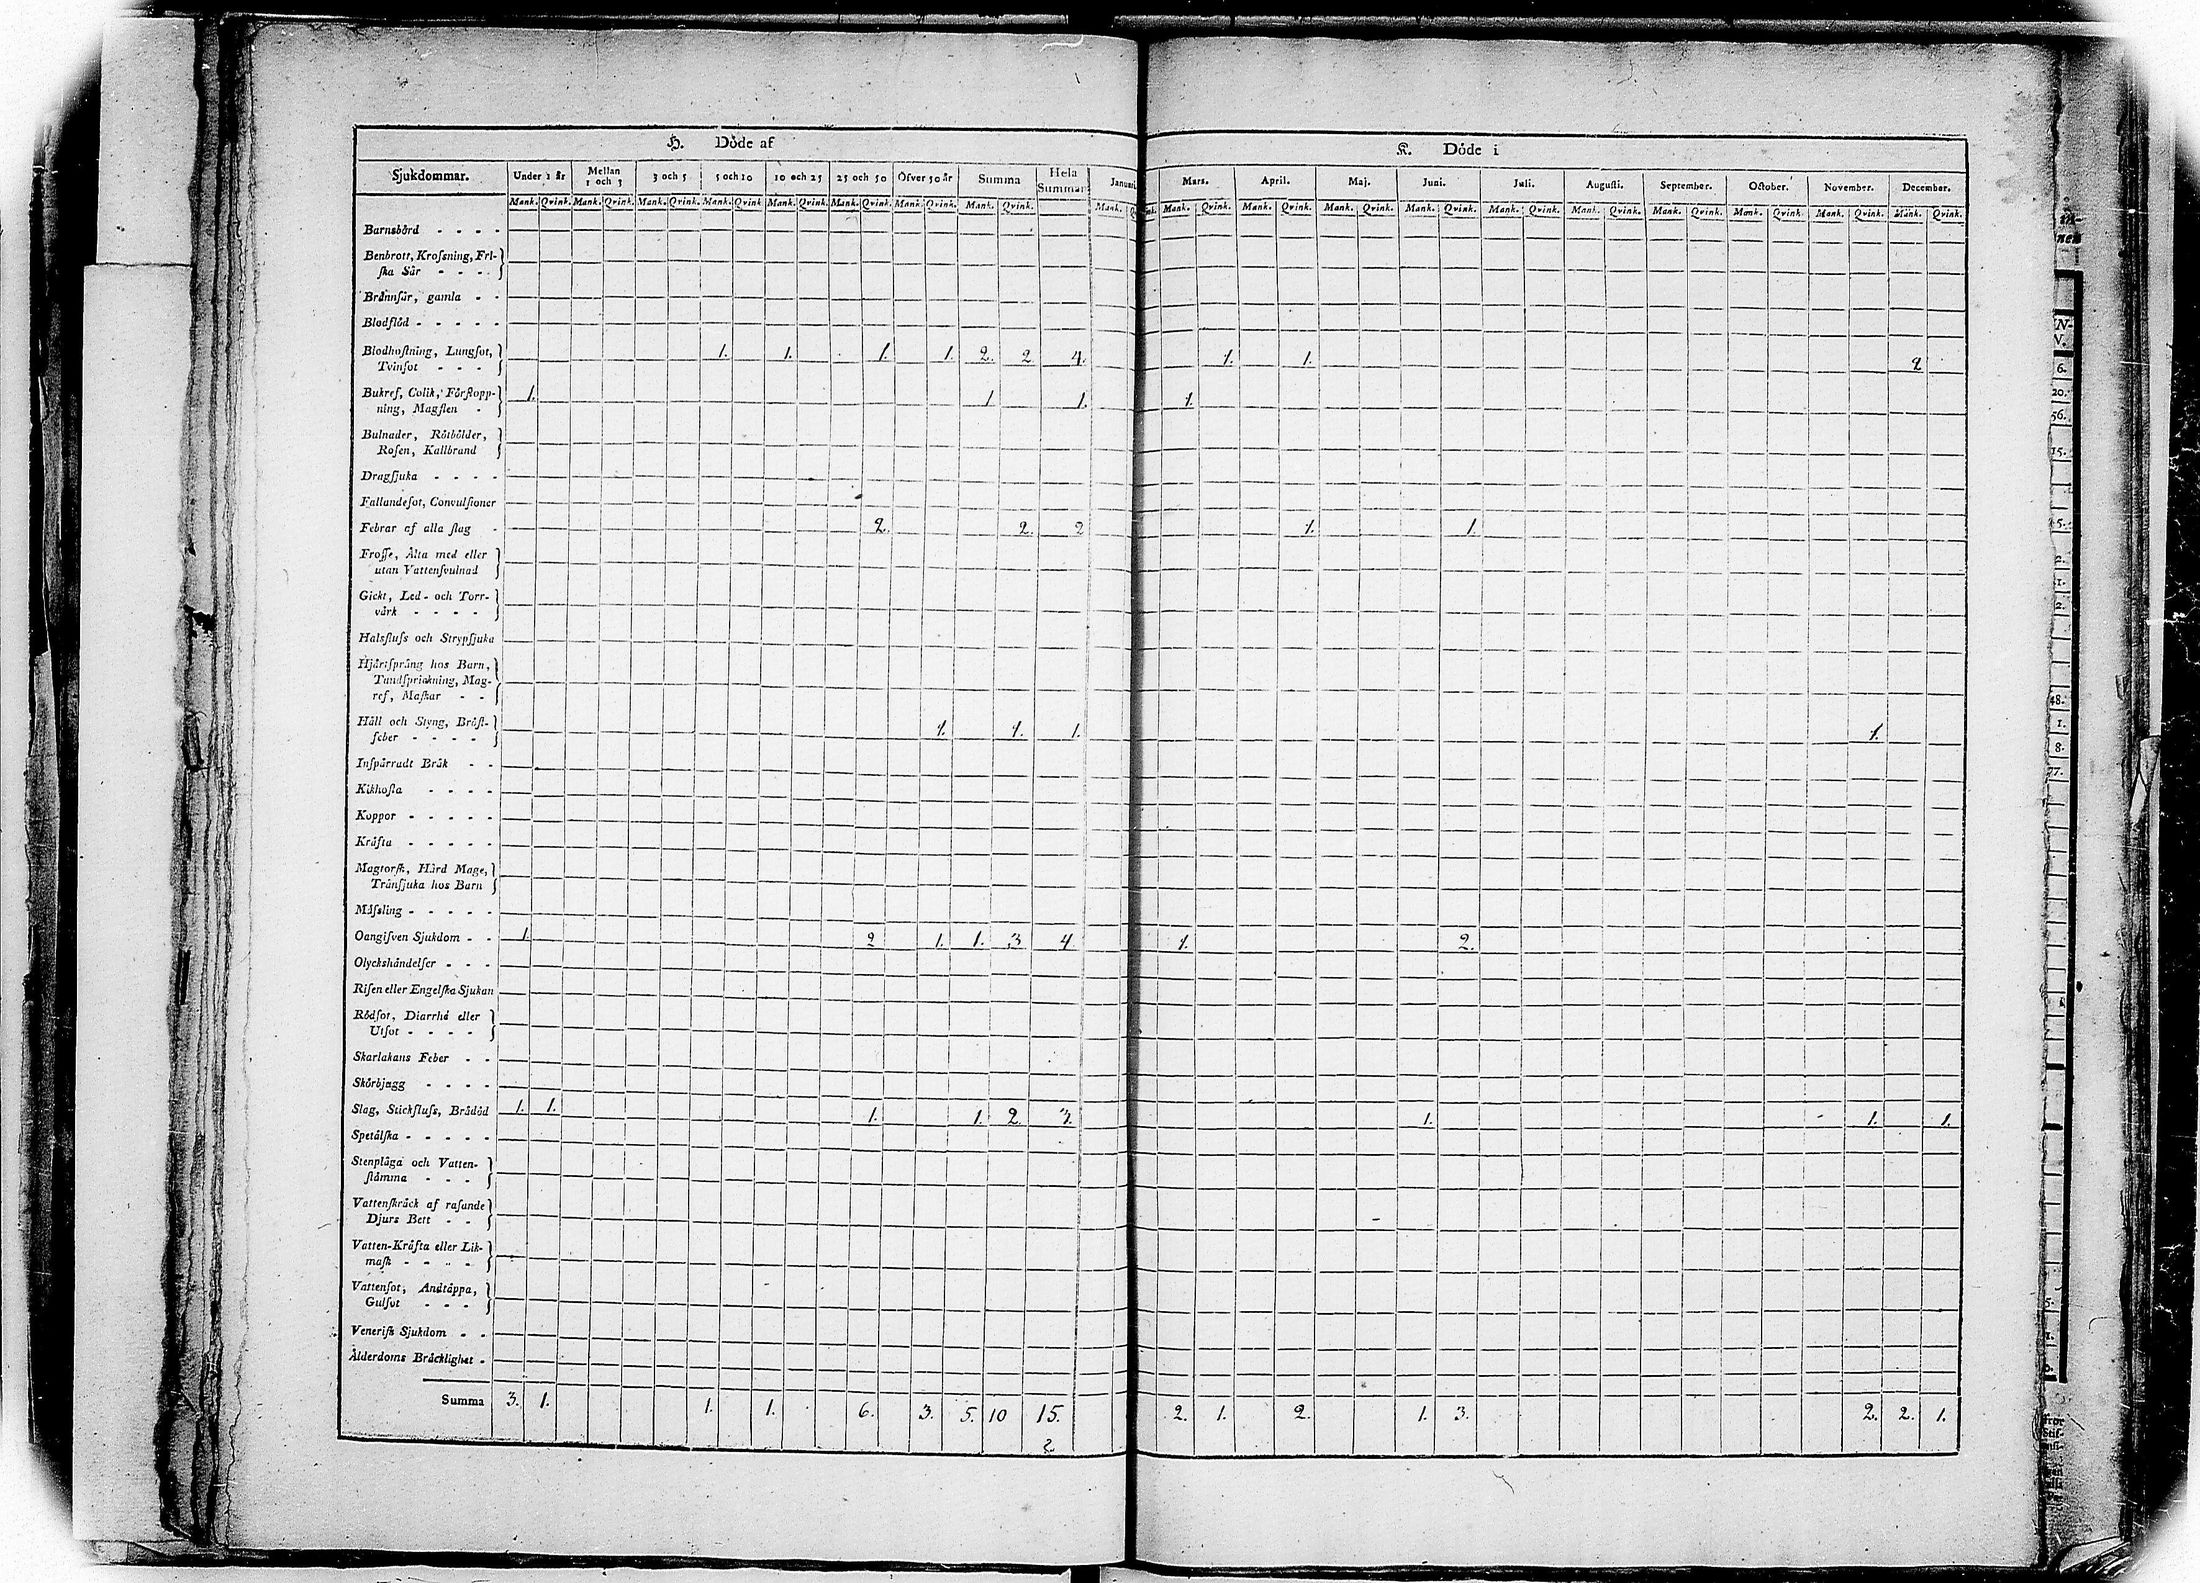 H. Döde af
K. Döde i
Sjukdommar. Under 1 år Mellan 1 och 3 3 och 5 5 och 10 10 och 25 25 och 50 Öfver 50 år Summa Hela Summan Januari Mars. April. Maj. Juni. Juli. Augusti. September. October. November. December.
Mank. Qvink. Mank. Qvink. Mank. Qvink. Mank. Qvink Mank. Qvink. Mank. Qvink. Mank. Qvink. Mank. Qvink. Mank. Mank. Qvink. Mank. Qvink. Mank. Qvink. Mank. Qvink. Mank. Qvink. Mank. Qvink. Mank. Qvink. Mank. Qvink. Mank. Qvink. Mank. Qvink.
Barnsbörd - - - -
Benbrott, Krofsning, Fri-
ska Sår - - -
Brännsår, gamla - -
Blodflöd - - - - -
Blodhostning, Lungsot,
Tvinsot - - - 1. 1. 1. 1. 2. 2 4. 1. 1. 2
Bukref, Colik, Förstopp-
ning, Magsten - 1. 1 1. 1.
Bulnader, Rötbölder,
Rosen, Kallbrand
Dragsjuka - - - -
Fallandesot, Convulsioner
Febrar af alla slag - 2. 2. 2 1. 1.
Frosse, Älta med eller
utan Vattensvulnad
Gickt, Led- och Torr-
värk - - - -
Halsfluss och Strypsjuka
Hjärtsprång hos Barn,
Tandsprickning, Mag-
ref, Maskar - -
Håll och Styng, Bröst-
feber - - - - 1. 1. 1. 1.
Inspärradt Bråk - -
Kikhosta - - - -
Koppor - - - - -
Kräfta - - - - -
Magtorsk, Hård Mage,
Tränsjuka hos Barn
Mässling - - - - -
Oangifven Sjukdom - - 1. 2 1. 1. 3 4 1. 2.
Olyckshändelser - - -
Risen eller Engelska Sjukan
Rödsot, Diarrhé eller
Utsot - - - -
Skarlakans Feber - -
Skörbjugg - - - -
Slag, Stickfluss, Brådöd 1. 1. 1. 1. 2. 3. 1. 1. 1.
Spetälska - - - - -
Stenplåga och Vatten-
stämma - - -
Vattenskräck af rasande
Djurs Bett - -
Vatten-Kräfta eller Lik-
mask - - - -
Vattensot, Andtäppa,
Gulsot - - -
Venerisk Sjukdom - -
Ålderdoms Bräcklighet -
Summa 3. 1. 1. 1. 6. 3. 5. 10 15. 2. 1. 2. 1. 3. 2. 2. 1.